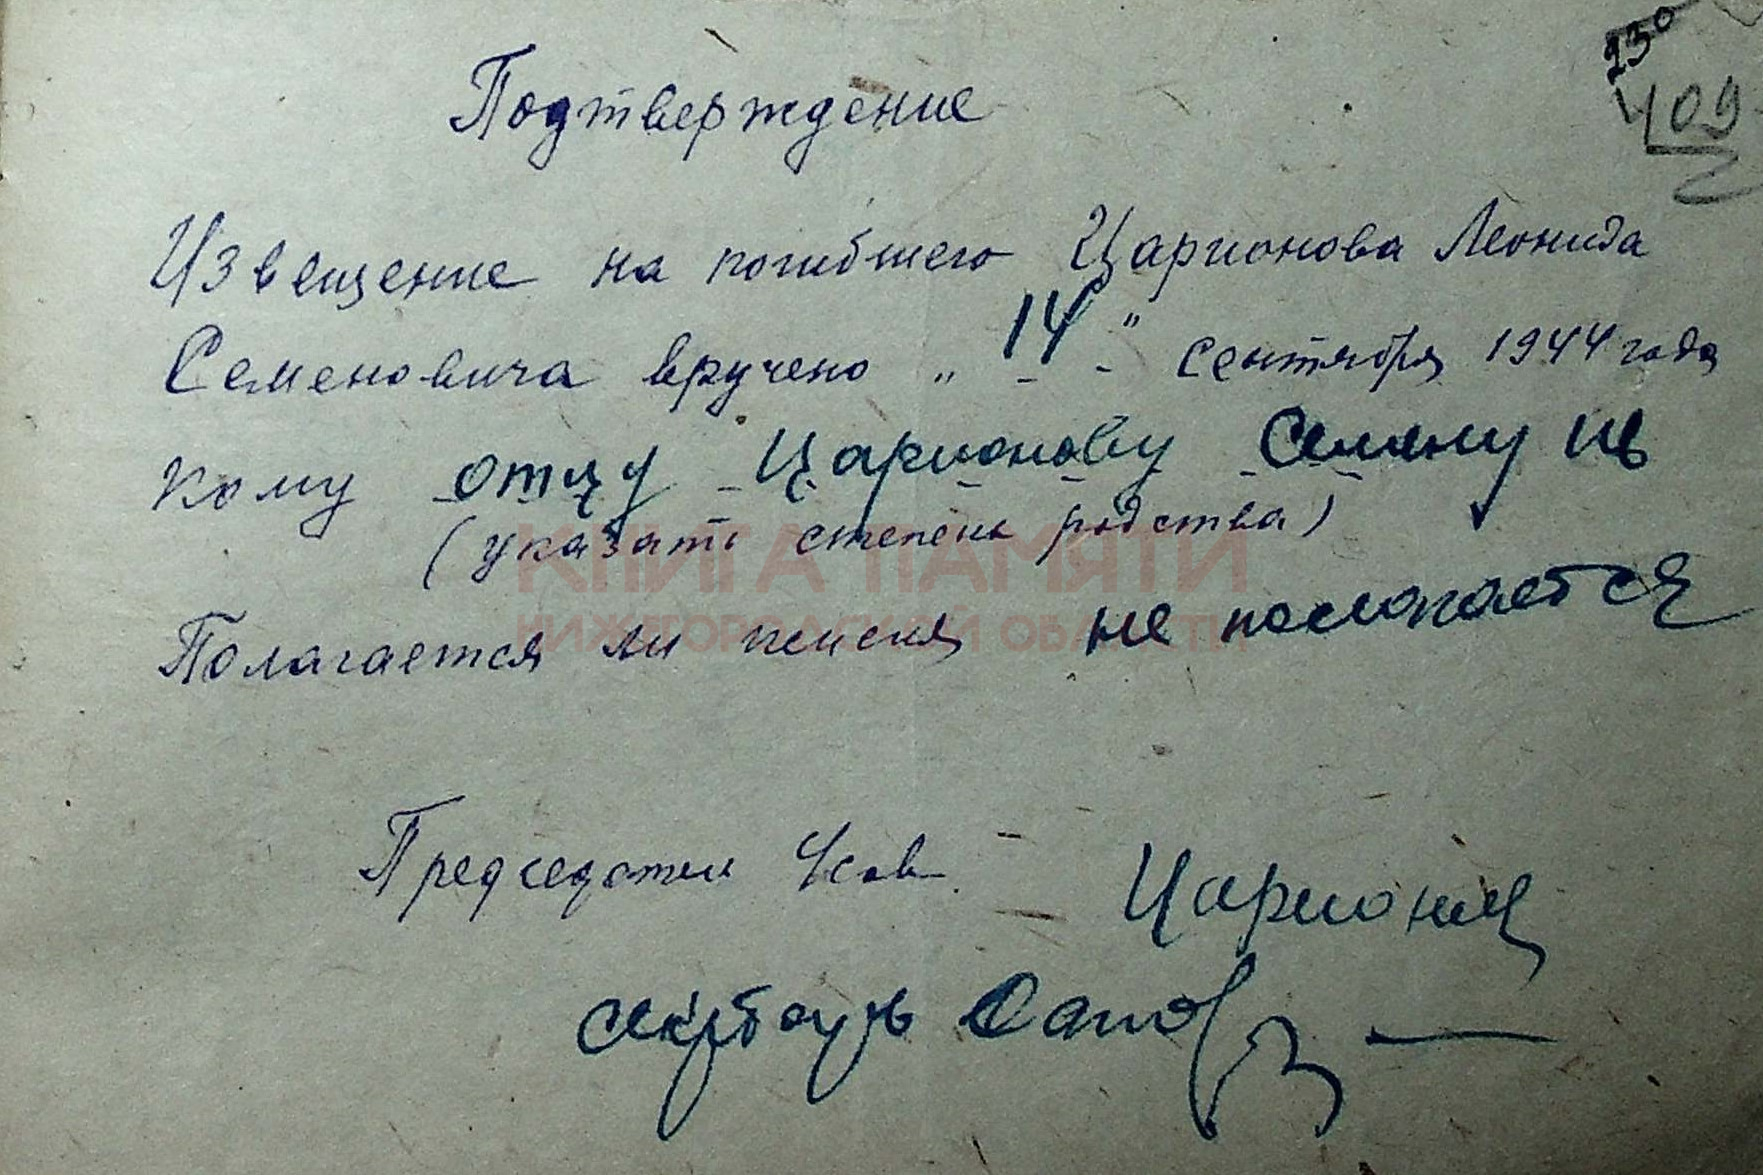 230
409
Подтверждение
Извещение на погибшего Царионова Леонида
Семеновича вручено " 14 " сентября 1944 года
Кому отцу Царионову Семену Ив
(указать степень родства)
КНИГА ПАМЯТИ
НИЖЕГОРОДСКОЙ ОБЛАСТИ
Полагается ли пенсия не пологается
Председатель
Царионов
секретарь